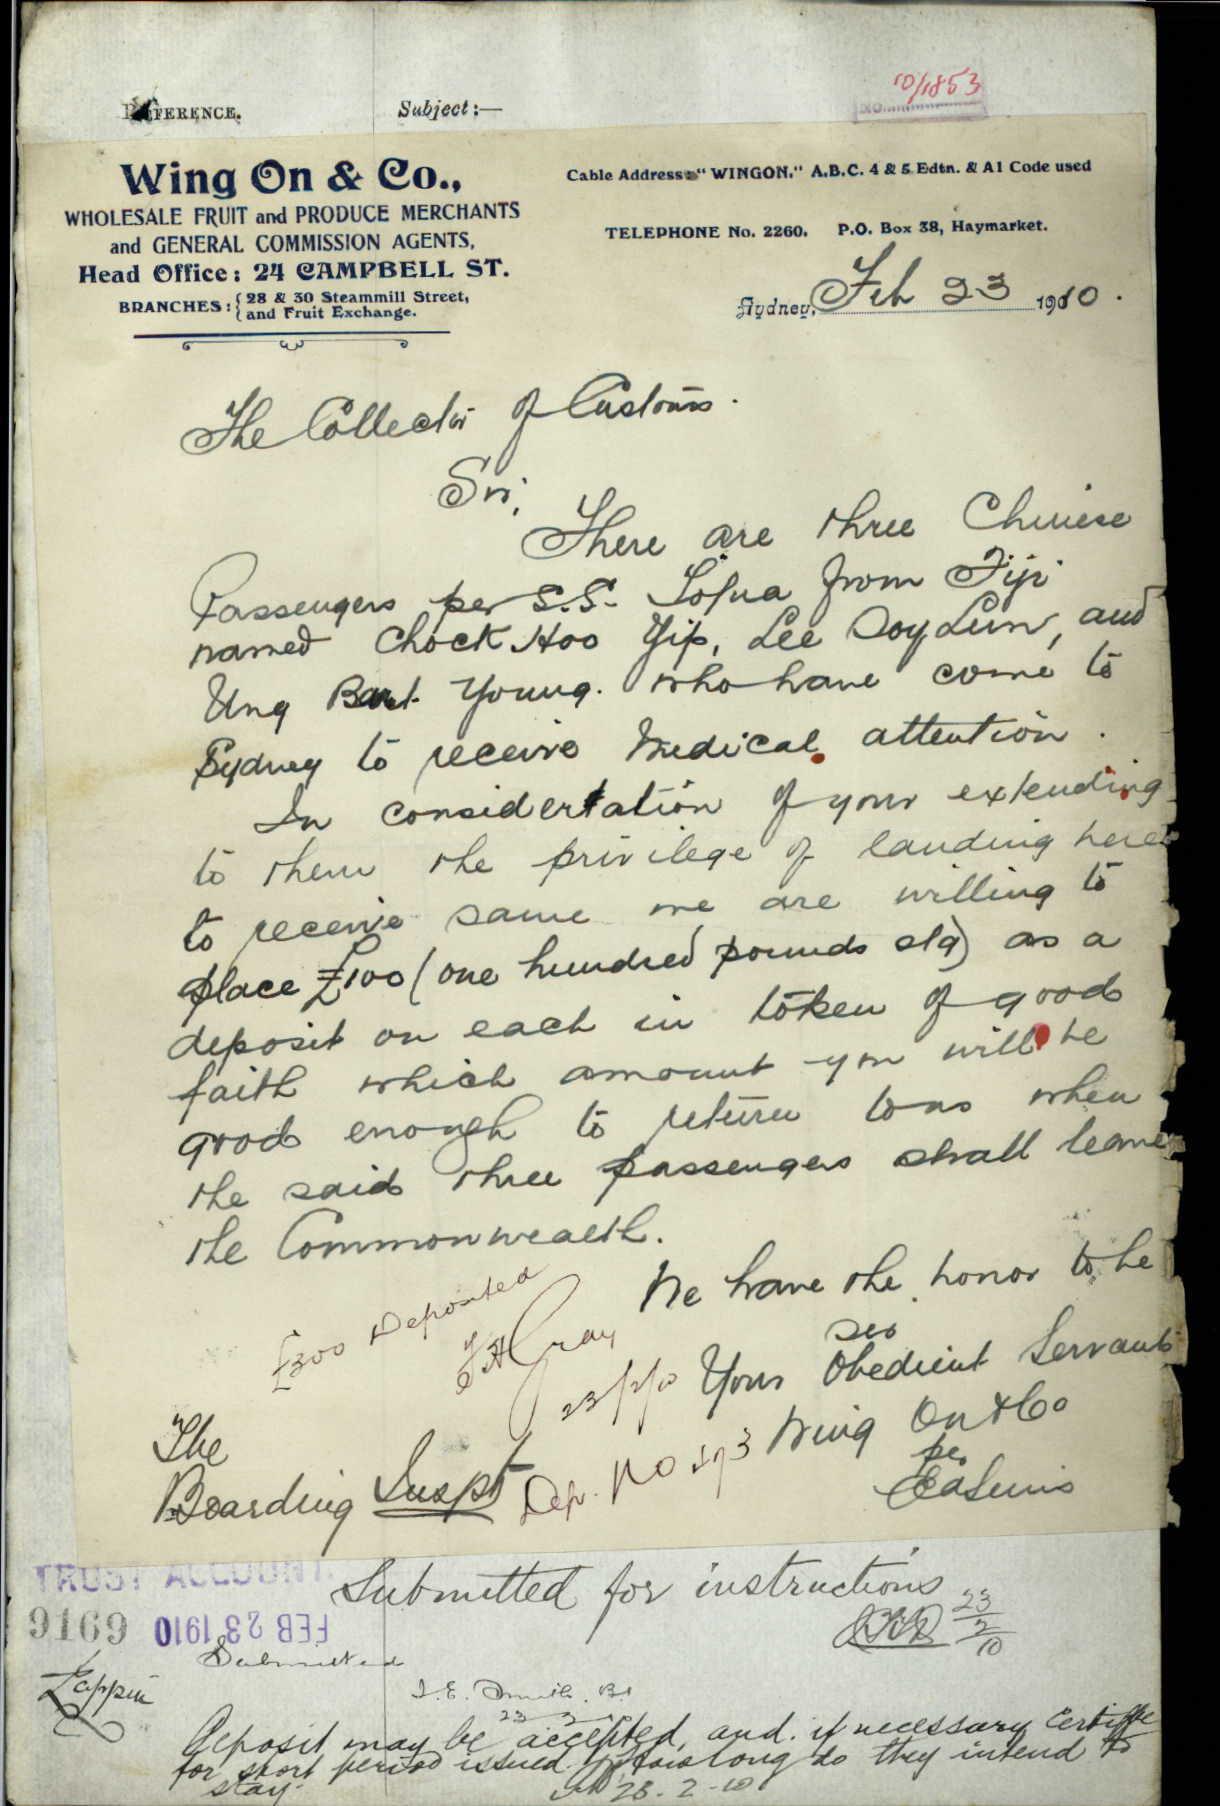 10/1853
REFERENCE.
Subject:—
Wing On & Co.,
WHOLESALE FRUIT and PRODUCE MERCHANTS
and GENERAL COMMISSION AGENTS,
Head Office: 24 CAMPBELL ST.
BRANCHES: { 28 & 30 Steammill Street,
and Fruit Exchange.
Cable Address: "WINGON." A.B.C. 4 & 5 Edtn. & A1 Code used
TELEPHONE No. 2260. P.O. Box 38, Haymarket.
Sydney, Feb 23 1910.
The Collector of Customs.
Sir,
There are three Chinese
Passengers per S.S. Tofua from Fiji
named Chock Hoo Yip, Lee Soy Lun, and
Ung Bart Young. who have come to
Sydney to receive medical attention.
In considertation of your extending
to them the privilege of landing here
to receive same we are willing to
place £100 (one hundred pounds stg) as a
deposit on each in token of good
faith which amount you will be
good enough to return to us when
the said three passengers shall leave
the Commonwealth.
We have the honor to be
Sir
Your Obedient Servants
Wing On & Co
per
£300 Deposited
T H Gray
23/2/10
Dep. No 573
The
Boarding Inspt
TRUST ACCOUNT.
9169 FEB 23 1910
Submitted for instructions
23/2/10
Submitted
J. E. Smith. B.I
23 2 10
Deposit may be accepted, and if necessary certifte
for short period issued. How long do they intend to
stay.
23-2-10